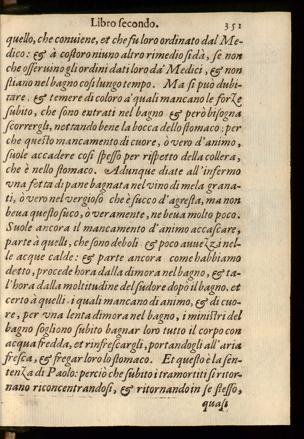 Libro secondo. 351
quello, che conuiene, et che fu loro ordinato dal Me-
dico: & à costoro niuno altro rimedio si dà, se non
che osseruino gli ordini dati loro da' Medici, & non
stiano nel bagno così lungo tempo. Ma si può dubi-
tare. & temere di coloro a' quali mancano le forze
subito, che sono entrati nel bagno & però bisogna
scorrergli, nettando bene la bocca dello stomaco: per
che questo mancamento di cuore, ò vero d'animo,
suole accadere così spesso per rispetto della collera,
che è nello stomaco. Adunque diate all'infermo
vna fetta di pane bagnata nel vino di mela grana-
ti, ò vero nel vergioso che è succo d'agresta, ma non
beua questo suco, ò veramente, ne beua molto poco.
Suole ancora il mancamento d'animo accascare,
parte à quelli, che sono deboli & poco auuezzi nel-
le acque calde: & parte ancora come habbiamo
detto, procede hora dalla dimora nel bagno, & ta-
l'hora dalla moltitudine del sudore dopò il bagno. et
certo à quelli. i quali mancano di animo, & di cuo-
re, per vna lenta dimora nel bagno, i ministri del
bagno sogliono subito bagnar loro tutto il corpo con
acqua fredda, et rinfrescargli, portandogli all'aria
fresca, & fregar loro lo stomaco. Et questo è la sen-
tenza di Paolo: perciò che subito i tramortiti si ritor-
nano riconcentrandosi, & ritornando in se stesso,
quasi